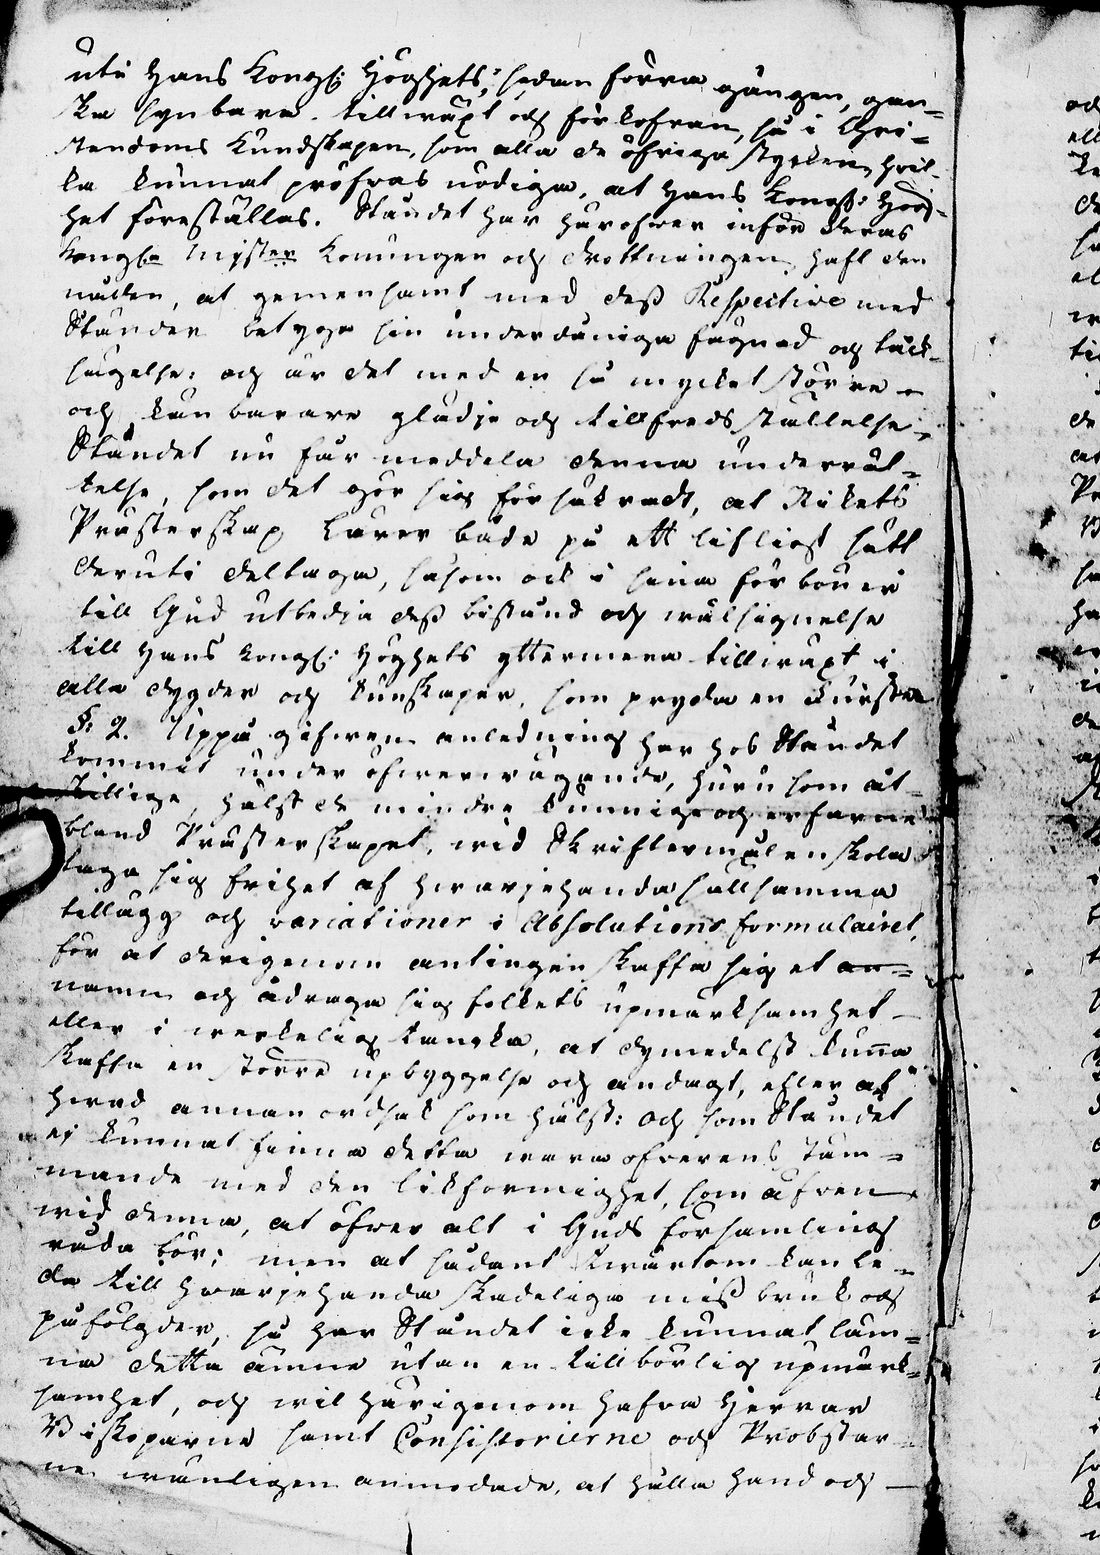 uti Hans Kongl: Höghets, sedan förra gången, gan-
ska synbara tillwäxt och förkofran, så i Chri-
stendoms Kundskapen, som alla de öfriga stycken, hvil-
ka kunnat pröfvas nödiga, at Hans Kongl: Hög-
het föreställas. Ståndet har härofwer inför Deras
Kongl:a Maj:ster Konungen och Drottningen, haft den
nåden, at gemensamt med dess Respective med
Ständer betyga sin underdåniga fägnad och tack-
sägelse: och är det med en så mycket större
och kännbarare glädje och tillfredsställelse,
Ståndet nu får meddela denna underrät-
telse, som det gör sig försäkradt, at Rikets
Prästerskap lärer både på ett lifligt sätt
deruti deltaga, såsom ock i sina förböner
till Gud utbedja dess bistånd och wälsignelse
till Hans Kongl: Höghets yttermera tillwäxt i
alla dygder och kunskaper, som pryda en Furste
§: 2. Uppå gifwen anledning har hos Ståndet
kommit under öfwerwägande, huru som åt-
skillige, hälst de mindre kunnige och erfarne
bland Prästerskapet, wid Skriftermålen skola
taga sig frihet af hwarjehanda sällsamma
tillägg och variationer i Absolutions formulairet,
för at derigenom antingen skaffa sig et
namn och ådraga sig folkets upmärksamhet
eller i werkelig tancka, at dymedelst kunna
skaffa en större upbyggelse och andagt, eller af
hwad annan ordsak som hälst: och som Ståndet
ej kunnat finna detta wara öfwerens stäm-
mande med den likformighet, som äfwen
wid denna, at öfwer alt i Guds församling
råda bör; men at sådant twärtom kan le-
da till hwarjehanda skadeliga missbruk och
påfölgder, så har Ståndet icke kunnat läm-
na detta ämne utan en tillbörlig upmärk-
samhet, och wil härigenom hafwa Herrar
Biskoparne samt Consistorierne och Probstar-
ne wänligen anmodade, at hålla hand och